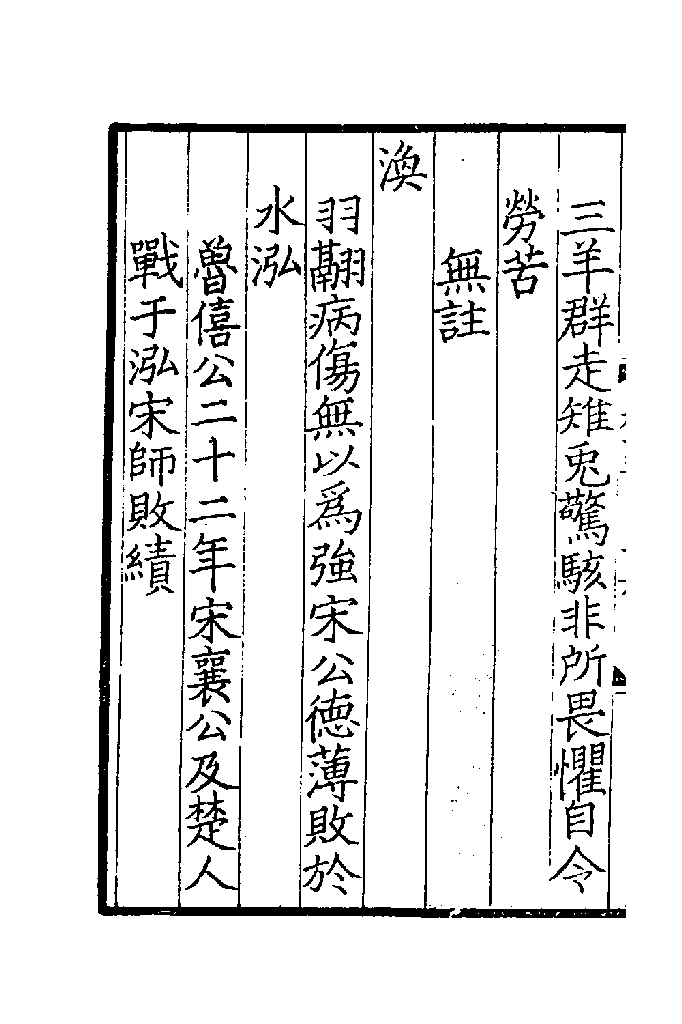 三羊群走雉兎驚駭非所畏懼自令
勞苦
無註
渙
羽翮病傷無以爲強宋公德薄敗於
水泓
魯僖公二十二年宋襄公及楚人
戰于泓宋師敗績